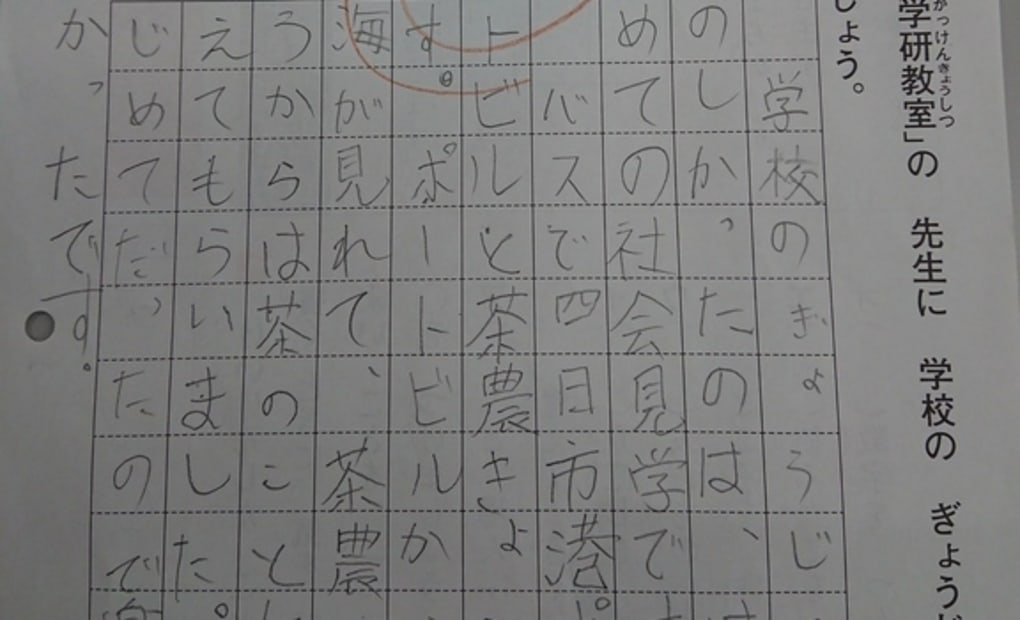 学研教室」の 先生に 学校の ぎょう
がっけんきょうしつ
しょう。
学校のぎょうじ
のしかったのは、
めてのの社会見学で
バスで四日市港
トビルと茶農きょ
す。ポートビルか
海が見れて、茶農
うからは茶のこと
えてもらいました。
じめてだったので
かったです。